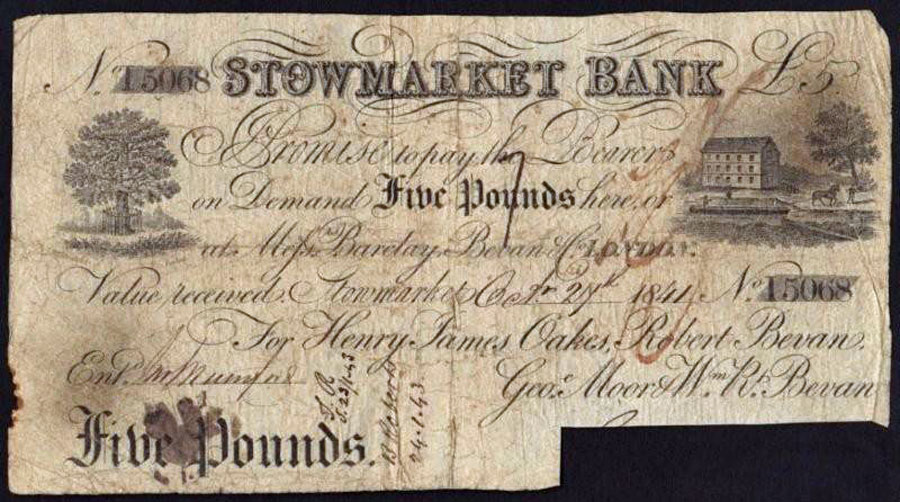 No. 15068 STOWMARKET BANK £5
I Promise to pay the Bearer
on Demand Five Pounds here, or
at Messrs. Barclay, Bevan & Co. LONDON.
Value received, Stowmarket 1841 No. 15068
For Henry James Oakes, Robert Bevan,
Entd.
Geoe. Moor & Wm. Rt. Bevan
Five Pounds.
24.1.43